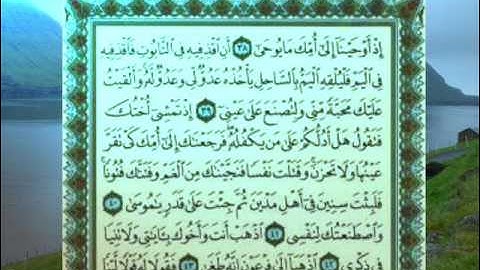 إِذْ أَوْحَيْنَا إِلَىٰ أُمِّكَ مَا يُوحَىٰ ٣٨ أَنِ ٱقْذِفِيهِ فِي ٱلتَّابُوتِ فَٱقْذِفِيهِ
فِي ٱلْيَمِّ فَلْيُلْقِهِ ٱلْيَمُّ بِٱلسَّاحِلِ يَأْخُذْهُ عَدُوٌّ لِّي وَعَدُوٌّ لَّهُۥ وَأَلْقَيْتُ
عَلَيْكَ مَحَبَّةً مِّنِّي وَلِتُصْنَعَ عَلَىٰ عَيْنِي ٣٩ إِذْ تَمْشِي أُخْتُكَ
فَتَقُولُ هَلْ أَدُلُّكُمْ عَلَىٰ مَن يَكْفُلُهُۥ فَرَجَعْنَٰكَ إِلَىٰ أُمِّكَ كَيْ تَقَرَّ
عَيْنُهَا وَلَا تَحْزَنَ وَقَتَلْتَ نَفْسًا فَنَجَّيْنَٰكَ مِنَ ٱلْغَمِّ وَفَتَنَّٰكَ فُتُونًا
فَلَبِثْتَ سِنِينَ فِي أَهْلِ مَدْيَنَ ثُمَّ جِئْتَ عَلَىٰ قَدَرٍ يَٰمُوسَىٰ ٤٠
وَٱصْطَنَعْتُكَ لِنَفْسِي ٤١ ٱذْهَبْ أَنتَ وَأَخُوكَ بِـَٔايَٰتِي وَلَا تَنِيَا
فِي ذِكْرِي ٤٢ ٱذْهَبَا إِلَىٰ فِرْعَوْنَ إِنَّهُۥ طَغَىٰ ٤٣ فَقُولَا لَهُۥ قَوْلًا لَّيِّنًا